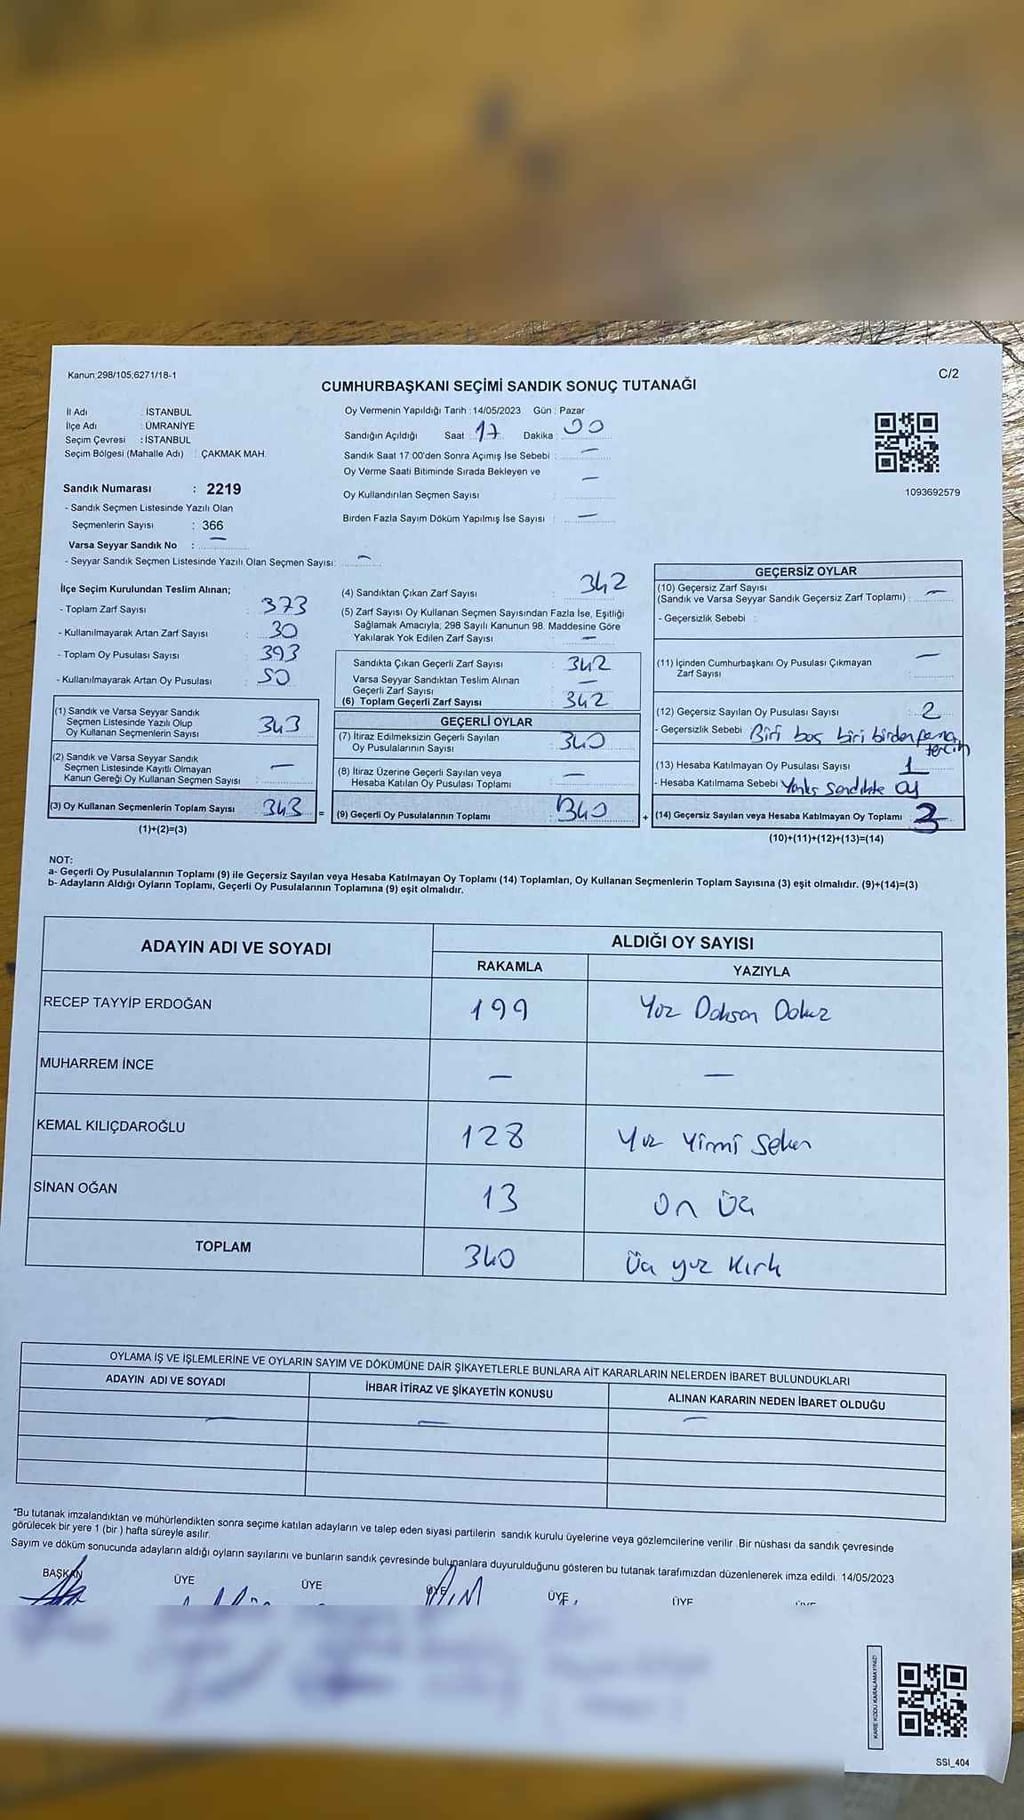 Kanun:298/105,6271/18-1
C/2
CUMHURBAŞKANI SEÇİMİ SANDIK SONUÇ TUTANAĞI
İl Adı : İSTANBUL
İlçe Adı : ÜMRANİYE
Seçim Çevresi : İSTANBUL
Seçim Bölgesi (Mahalle Adı) : ÇAKMAK MAH.
Sandık Numarası : 2219
- Sandık Seçmen Listesinde Yazılı Olan
Seçmenlerin Sayısı : 366
Varsa Seyyar Sandık No : —
- Seyyar Sandık Seçmen Listesinde Yazılı Olan Seçmen Sayısı: —
Oy Vermenin Yapıldığı Tarih : 14/05/2023 Gün : Pazar
Sandığın Açıldığı Saat 17 Dakika 00
Sandık Saat 17:00'den Sonra Açımış İse Sebebi : —
Oy Verme Saati Bitiminde Sırada Bekleyen ve
Oy Kullandırılan Seçmen Sayısı : —
Birden Fazla Sayım Döküm Yapılmış İse Sayısı : —
1093692579
İlçe Seçim Kurulundan Teslim Alınan;
- Toplam Zarf Sayısı : 373
- Kullanılmayarak Artan Zarf Sayısı : 30
- Toplam Oy Pusulası Sayısı : 393
- Kullanılmayarak Artan Oy Pusulası : 50
(1) Sandık ve Varsa Seyyar Sandık
Seçmen Listesinde Yazılı Olup
Oy Kullanan Seçmenlerin Sayısı : 343
(2) Sandık ve Varsa Seyyar Sandık
Seçmen Listesinde Kayıtlı Olmayan
Kanun Gereği Oy Kullanan Seçmen Sayısı : —
(3) Oy Kullanan Seçmenlerin Toplam Sayısı : 343 =
(1)+(2)=(3)
(4) Sandıktan Çıkan Zarf Sayısı : 342
(5) Zarf Sayısı Oy Kullanan Seçmen Sayısından Fazla İse, Eşitliği
Sağlamak Amacıyla; 298 Sayılı Kanunun 98. Maddesine Göre
Yakılarak Yok Edilen Zarf Sayısı : —
Sandıkta Çıkan Geçerli Zarf Sayısı : 342
Varsa Seyyar Sandıktan Teslim Alınan
Geçerli Zarf Sayısı : —
(6) Toplam Geçerli Zarf Sayısı : 342
GEÇERLİ OYLAR
(7) İtiraz Edilmeksizin Geçerli Sayılan
Oy Pusulalarının Sayısı : 340
(8) İtiraz Üzerine Geçerli Sayılan veya
Hesaba Katılan Oy Pusulası Toplamı : —
(9) Geçerli Oy Pusulalarının Toplamı : 340 +
GEÇERSİZ OYLAR
(10) Geçersiz Zarf Sayısı
(Sandık ve Varsa Seyyar Sandık Geçersiz Zarf Toplamı) : —
- Geçersizlik Sebebi :
(11) İçinden Cumhurbaşkanı Oy Pusulası Çıkmayan
Zarf Sayısı : —
(12) Geçersiz Sayılan Oy Pusulası Sayısı : 2
- Geçersizlik Sebebi : Biri boş biri birden fazla
tercih
(13) Hesaba Katılmayan Oy Pusulası Sayısı : 1
- Hesaba Katılmama Sebebi : Yanlış sandıkta oy
(14) Geçersiz Sayılan veya Hesaba Katılmayan Oy Toplamı : 3
(10)+(11)+(12)+(13)=(14)
NOT:
a- Geçerli Oy Pusulalarının Toplamı (9) ile Geçersiz Sayılan veya Hesaba Katılmayan Oy Toplamı (14) Toplamları, Oy Kullanan Seçmenlerin Toplam Sayısına (3) eşit olmalıdır. (9)+(14)=(3)
b- Adayların Aldığı Oyların Toplamı, Geçerli Oy Pusulalarının Toplamına (9) eşit olmalıdır.
ADAYIN ADI VE SOYADI
ALDIĞI OY SAYISI
RAKAMLA YAZIYLA
RECEP TAYYİP ERDOĞAN 199 Yüz Doksan Dokuz
MUHARREM İNCE — —
KEMAL KILIÇDAROĞLU 128 Yüz Yirmi Sekiz
SİNAN OĞAN 13 On Üç
TOPLAM 340 Üç yüz Kırk
OYLAMA İŞ VE İŞLEMLERİNE VE OYLARIN SAYIM VE DÖKÜMÜNE DAİR ŞİKAYETLERLE BUNLARA AİT KARARLARIN NELERDEN İBARET BULUNDUKLARI
ADAYIN ADI VE SOYADI İHBAR İTİRAZ VE ŞİKAYETİN KONUSU ALINAN KARARIN NEDEN İBARET OLDUĞU
— — —
*Bu tutanak imzalandıktan ve mühürlendikten sonra seçime katılan adayların ve talep eden siyasi partilerin sandık kurulu üyelerine veya gözlemcilerine verilir. Bir nüshası da sandık çevresinde
görülecek bir yere 1 (bir) hafta süreyle asılır.
Sayım ve döküm sonucunda adayların aldığı oyların sayılarını ve bunların sandık çevresinde bulunanlara duyurulduğunu gösteren bu tutanak tarafımızdan düzenlenerek imza edildi. 14/05/2023
BAŞKAN ÜYE ÜYE ÜYE ÜYE ÜYE
KARE KODU KARALAMAYINIZ!
SSI_404